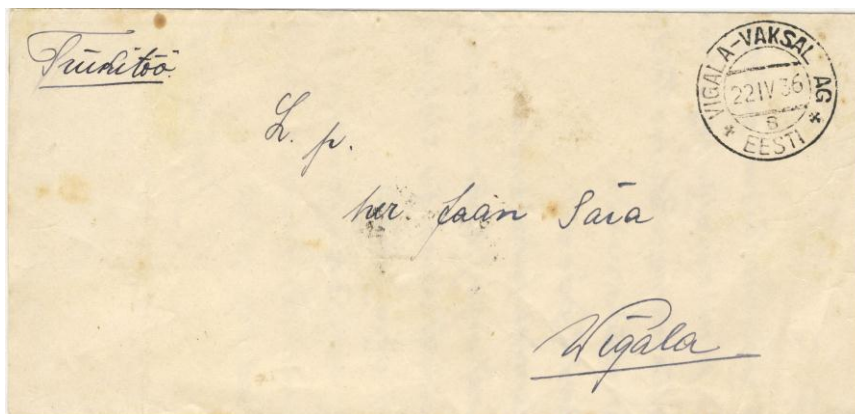 Trükitöö
VIGALA-VAKSAL AG
22 IV 36
B
* EESTI *
L. p.
her. Jaan
Wigala